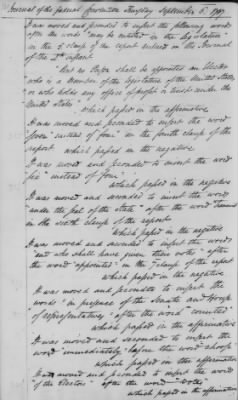 Journal of the federal Convention Thursday September 6. 1787.
It was moved and seconded to insert the following words
after the words "may be entitled in the legislature"
in the 5 clause of the report entered on the Journal
of the 4th instant
"But no Person shall be appointed an Elector
who is a member of the Legislature of the United States,
or who holds any office of profit or trust under the
United States"
which passed in the affirmative
It was moved and seconded to insert the word
"seven" instead of "four" in the fourth clause of the
report which passed in the negative
It was moved and seconded to insert the word
"six" instead of "four"
which passed in the negative
It was moved and seconded to insert the words
"under the seal of the State" after the word "transmit"
in the sixth clause of the report
which passed in the negative
It was moved and seconded to insert the words
"and who shall have given their votes" after
the word "appointed" in the 7 clause of the report
which passed in the negative
It was moved and seconded to insert the
words "in presence of the Senate and House
of representatives" after the word "counted"
which passed in the affirmative
It was moved and seconded to insert the
word "immediately" before the word "choose"
which passed in the affirmative
It was moved and seconded to insert the words
"of the Electors" after the word "votes"
which passed in the affirmative